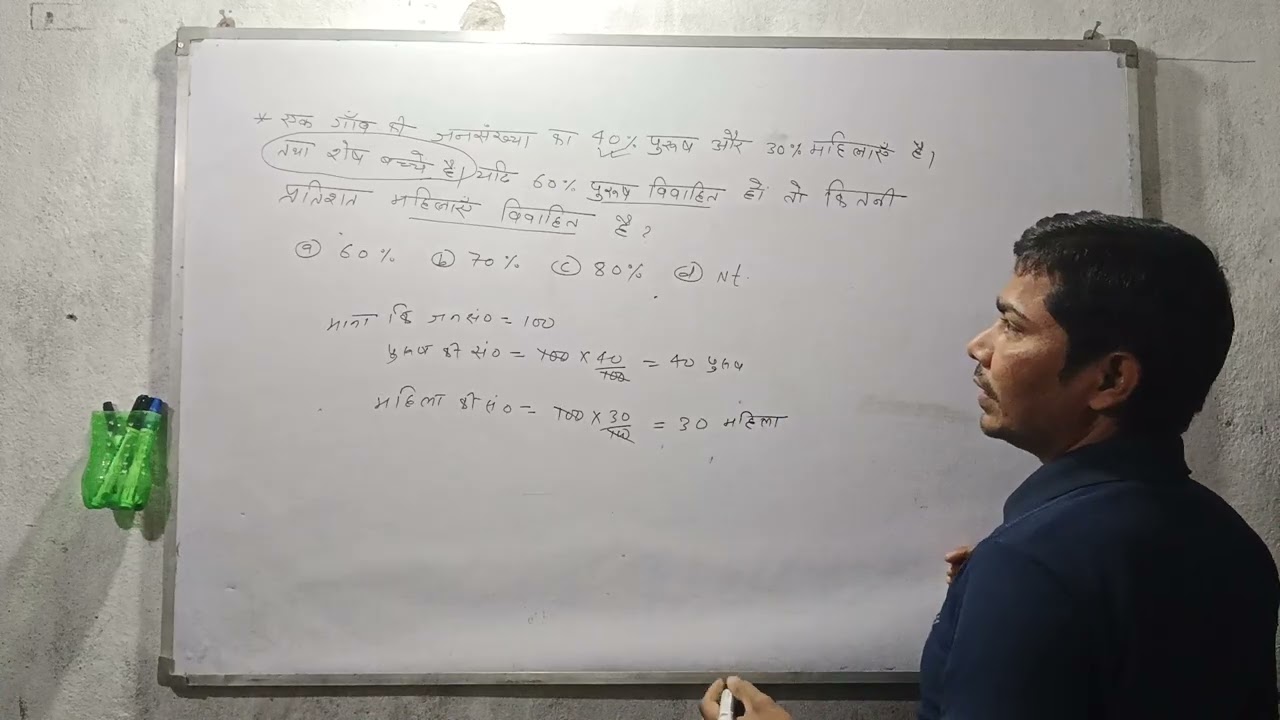 * एक गाँव की जनसंख्या का 40% पुरूष और 30% महिलाएँ है।
तथा शेष बच्चे है। यदि 60% पुरूष विवाहित हों तो कितनी
प्रतिशत महिलाएँ विवाहित है?
ⓐ 60% ⓑ 70% ⓒ 80% ⓓ Nt.
माना कि जनसं० = 100
पुरूष की सं० = 100 × 40/100 = 40 पुरूष
महिला की सं० = 100 × 30/100 = 30 महिला